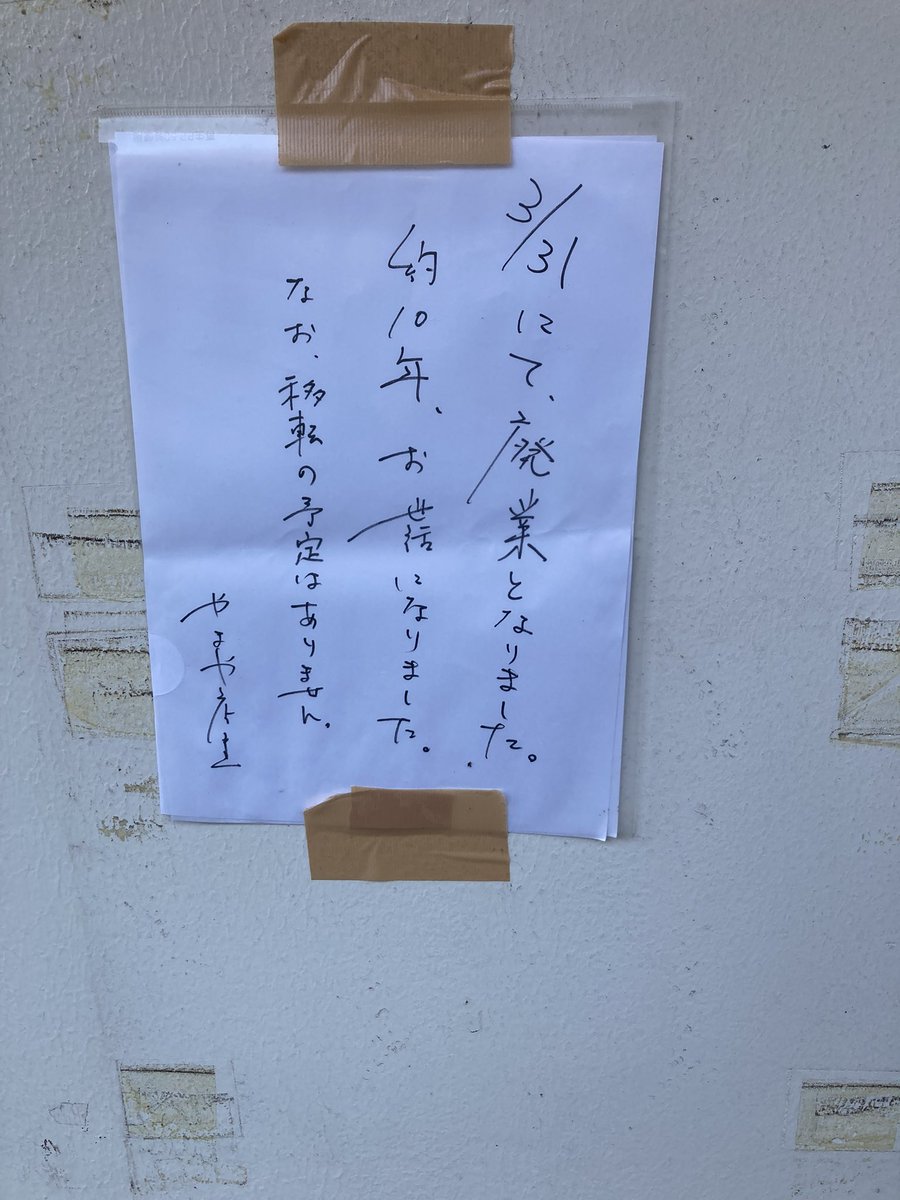 3/31にて、廃業となりました。
約10年、お世話になりました。
なお、移転の予定はありません。
やまや店主